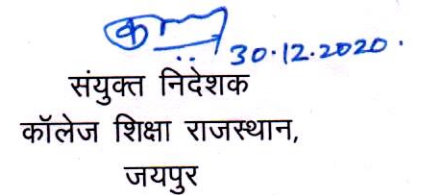 30.12.2020.
संयुक्त निदेशक
कॉलेज शिक्षा राजस्थान,
जयपुर